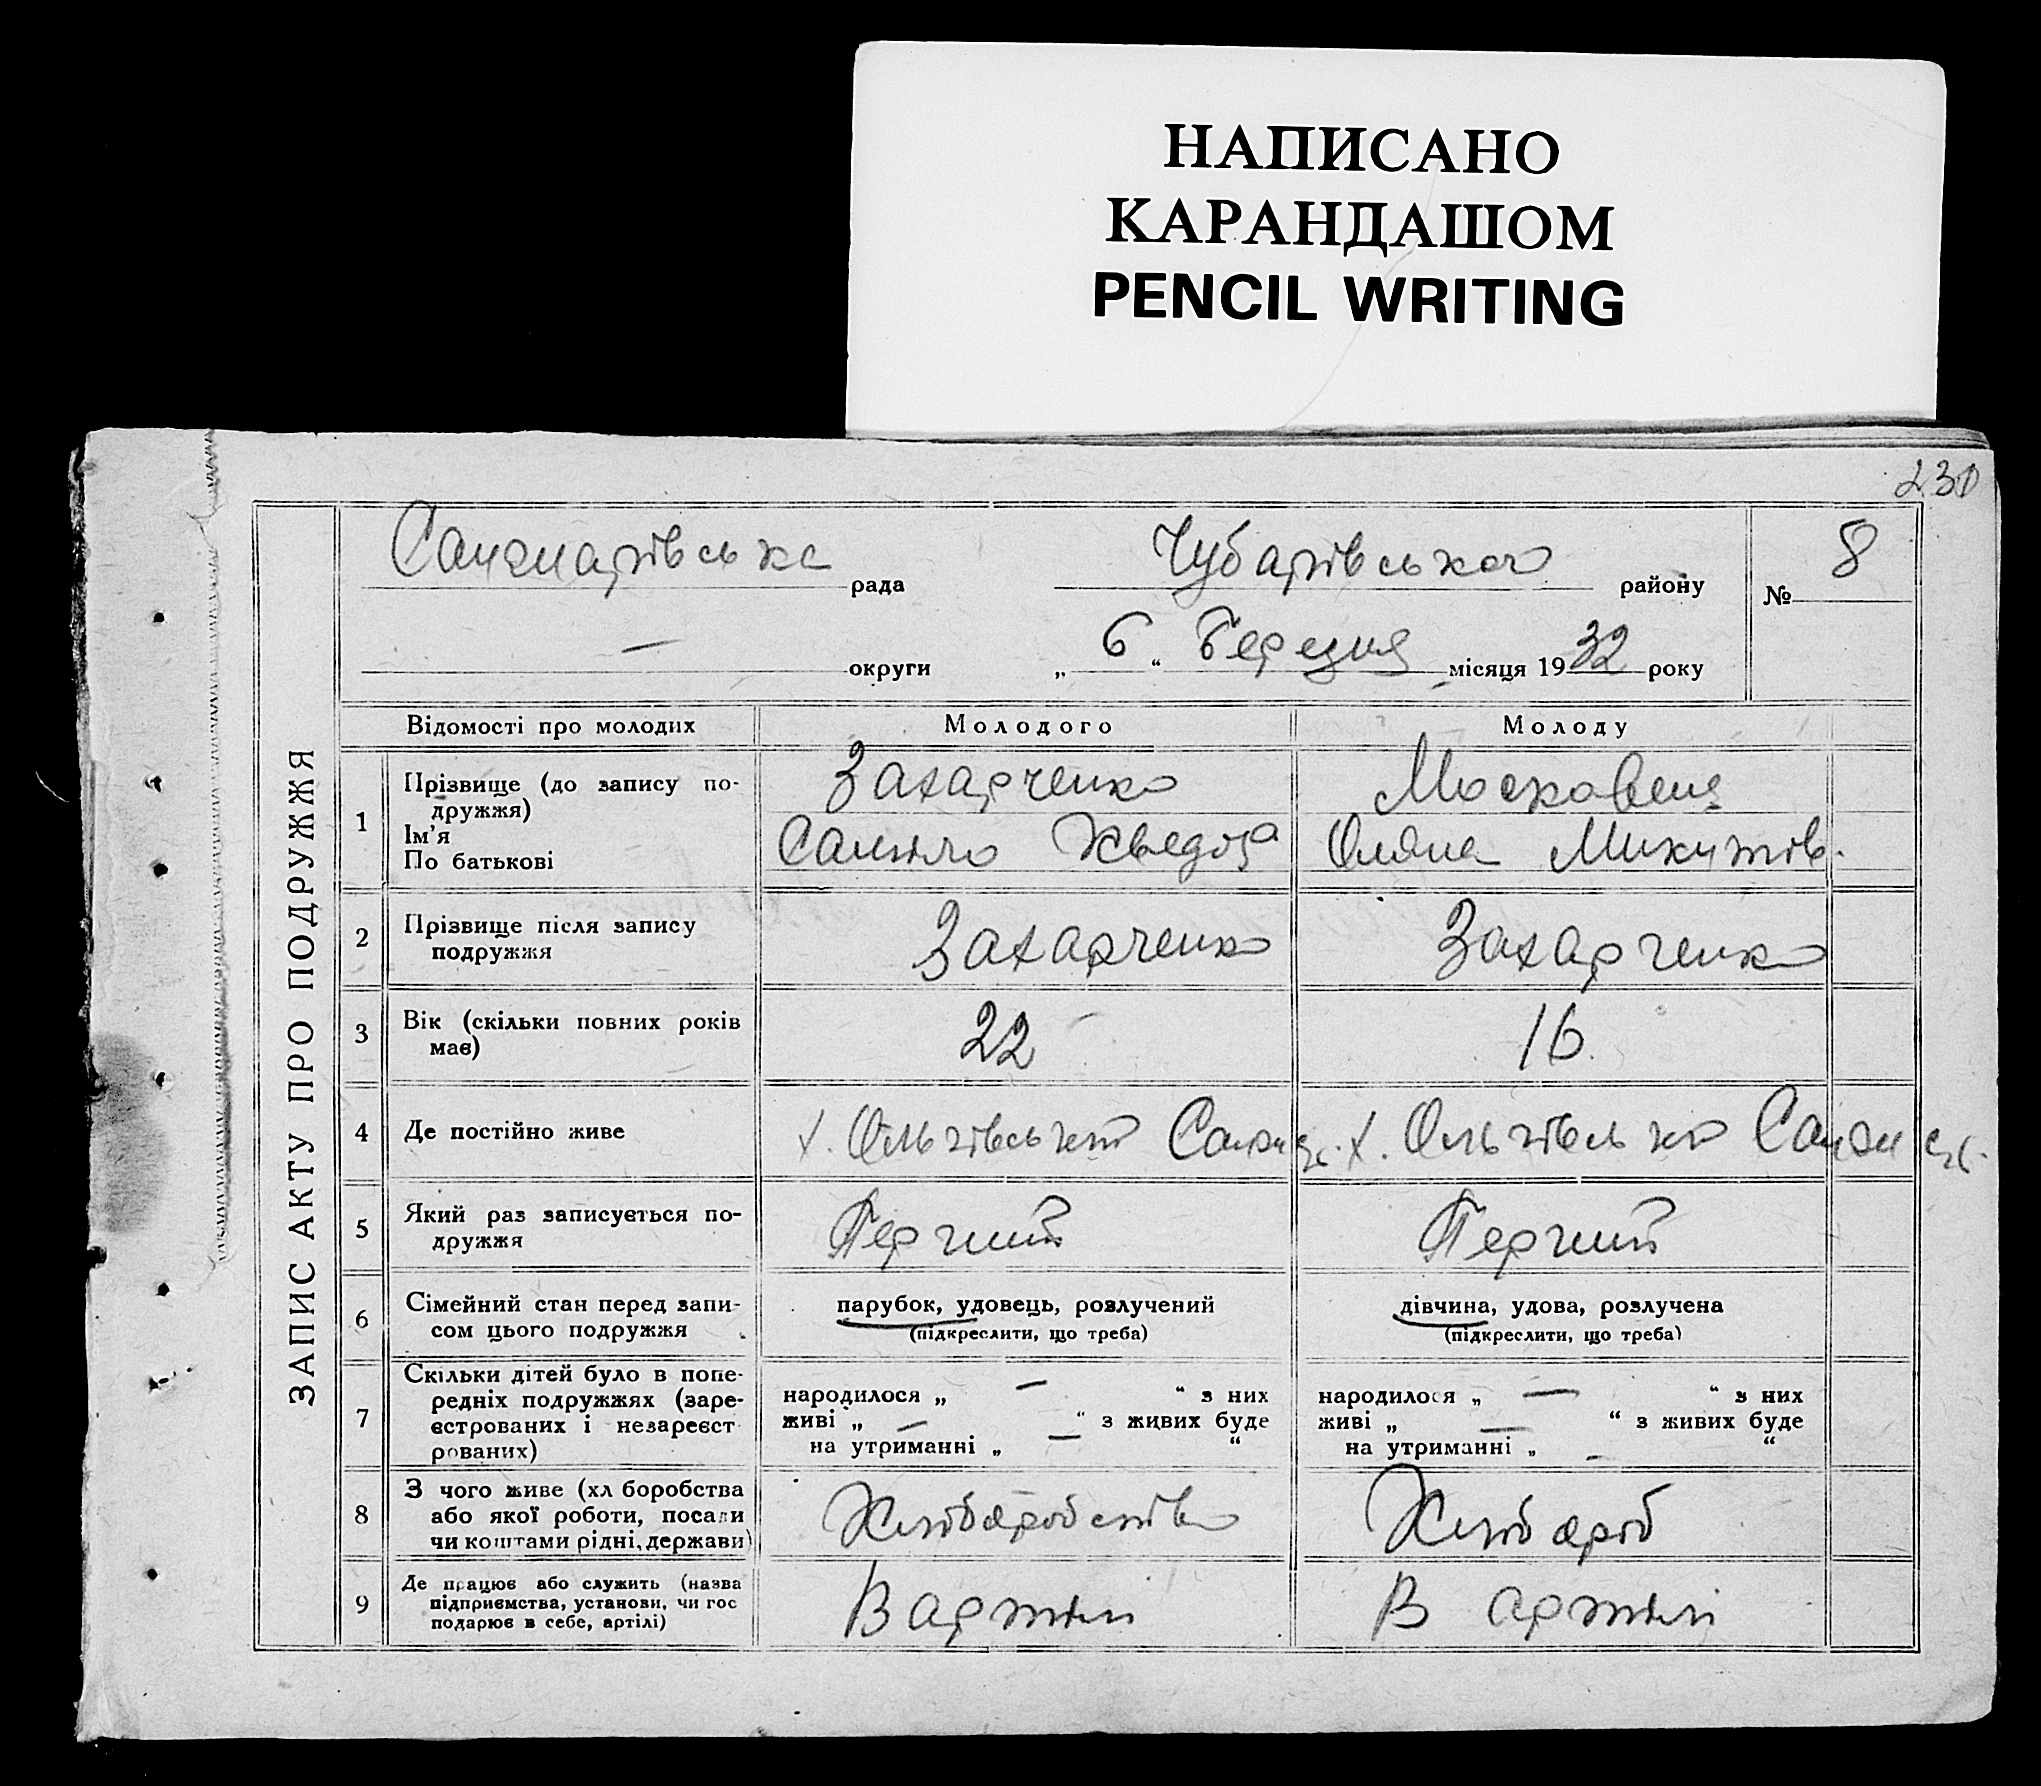 НАПИСАНО
КАРАНДАШОМ
PENCIL WRITING
230
ЗАПИС АКТУ ПРО ПОДРУЖЖЯ
рада Чубарівського району № 8
— округи „ 6 “ Березня місяця 1932 року
Відомості про молодих Молодого Молоду
1 Прізвище (до запису по-
дружжя)
Ім’я
По батькові
Захарченко
Хведор
Микитів.
2 Прізвище після запису
подружжя
Захарченко Захарченко
3 Вік (скільки повних років
має)
22 16
4 Де постійно живе
х. Ользівський х. Ользівські
5 Який раз записується по-
дружжя
Перший Перший
6 Сімейний стан перед запи-
сом цього подружжя
парубок, удовець, розлучений дівчина, удова, розлучена
(підкреслити, що треба) (підкреслити, що треба)
7 Скільки дітей було в попе-
редніх подружжях (заре-
єстрованих і незареєст-
рованих)
народилося „ — “ з них народилося „ — “ з них
живі „ — “ з живих буде живі „ — “ з живих буде
на утриманні „ — “ на утриманні „ — “
8 З чого живе (хл боробства
або якої роботи, посади
чи коштами рідні, держави)
Хлібаробство Хлібароб
9 Де працює або служить (назва
підприємства, установи, чи гос
подарює в себе, артілі)
В артілі В артілі